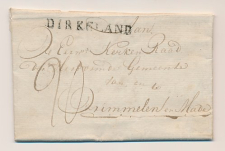 DIRKSLAND
Aan
De Eerw: Kerken Raad
der Hervormde Gemeente
te
Drimmelen & Made